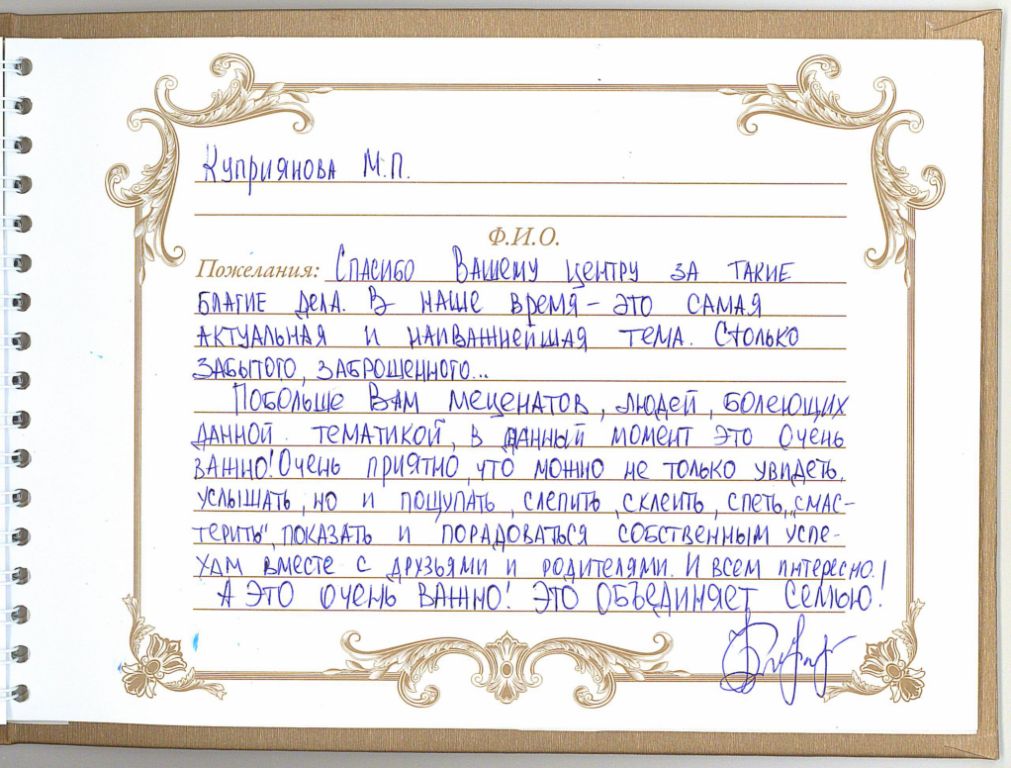 Куприянова М.П.
Ф.И.О.
Пожелания: Спасибо Вашему центру за такие
благие дела. В наше время – это самая
актуальная и наиважнейшая тема. Столько
забытого, заброшенного...
Побольше Вам меценатов, людей, болеющих
данной тематикой, в данный момент это очень
важно! Очень приятно, что можно не только увидеть,
услышать, но и пощупать, слепить, склеить, спеть, „смас-
терить", показать и порадоваться собственным успе-
хам вместе с друзьями и родителями. И всем интересно!
А это очень важно! Это объединяет семью!